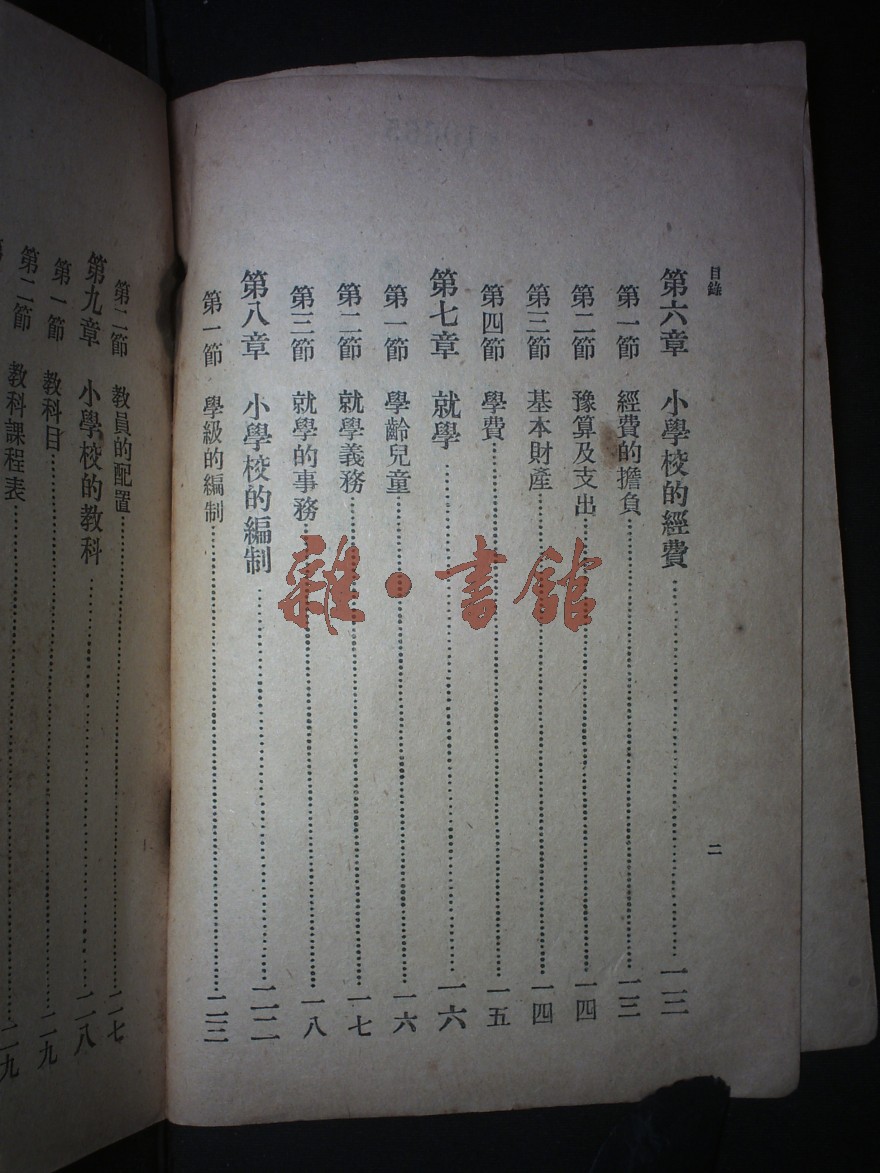 目錄
二
第六章 小學校的經費……一三
第一節 經費的擔負……一三
第二節 豫算及支出……一四
第三節 基本財產……一四
第四節 學費……一五
第七章 就學……一六
第一節 學齡兒童……一六
第二節 就學義務……一七
第三節 就學的事務……一八
第八章 小學校的編制……二二
第一節 學級的編制……二二
第二節 教員的配置……二七
第九章 小學校的教科……二八
第一節 教科目……二九
第二節 教科課程表……二九
雜·書館